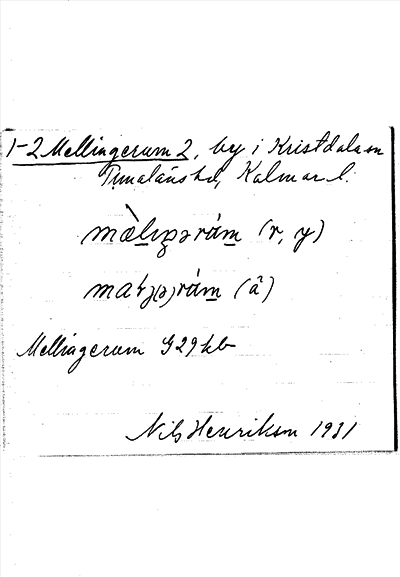 1-2 Mellingerum 2, by i Kristdala sn
Tunaläns hd, Kalmar l.
mæ̀lıŋərám (r, y)
(å)
Mellingerum G29kb
Nils Henrikson 1931